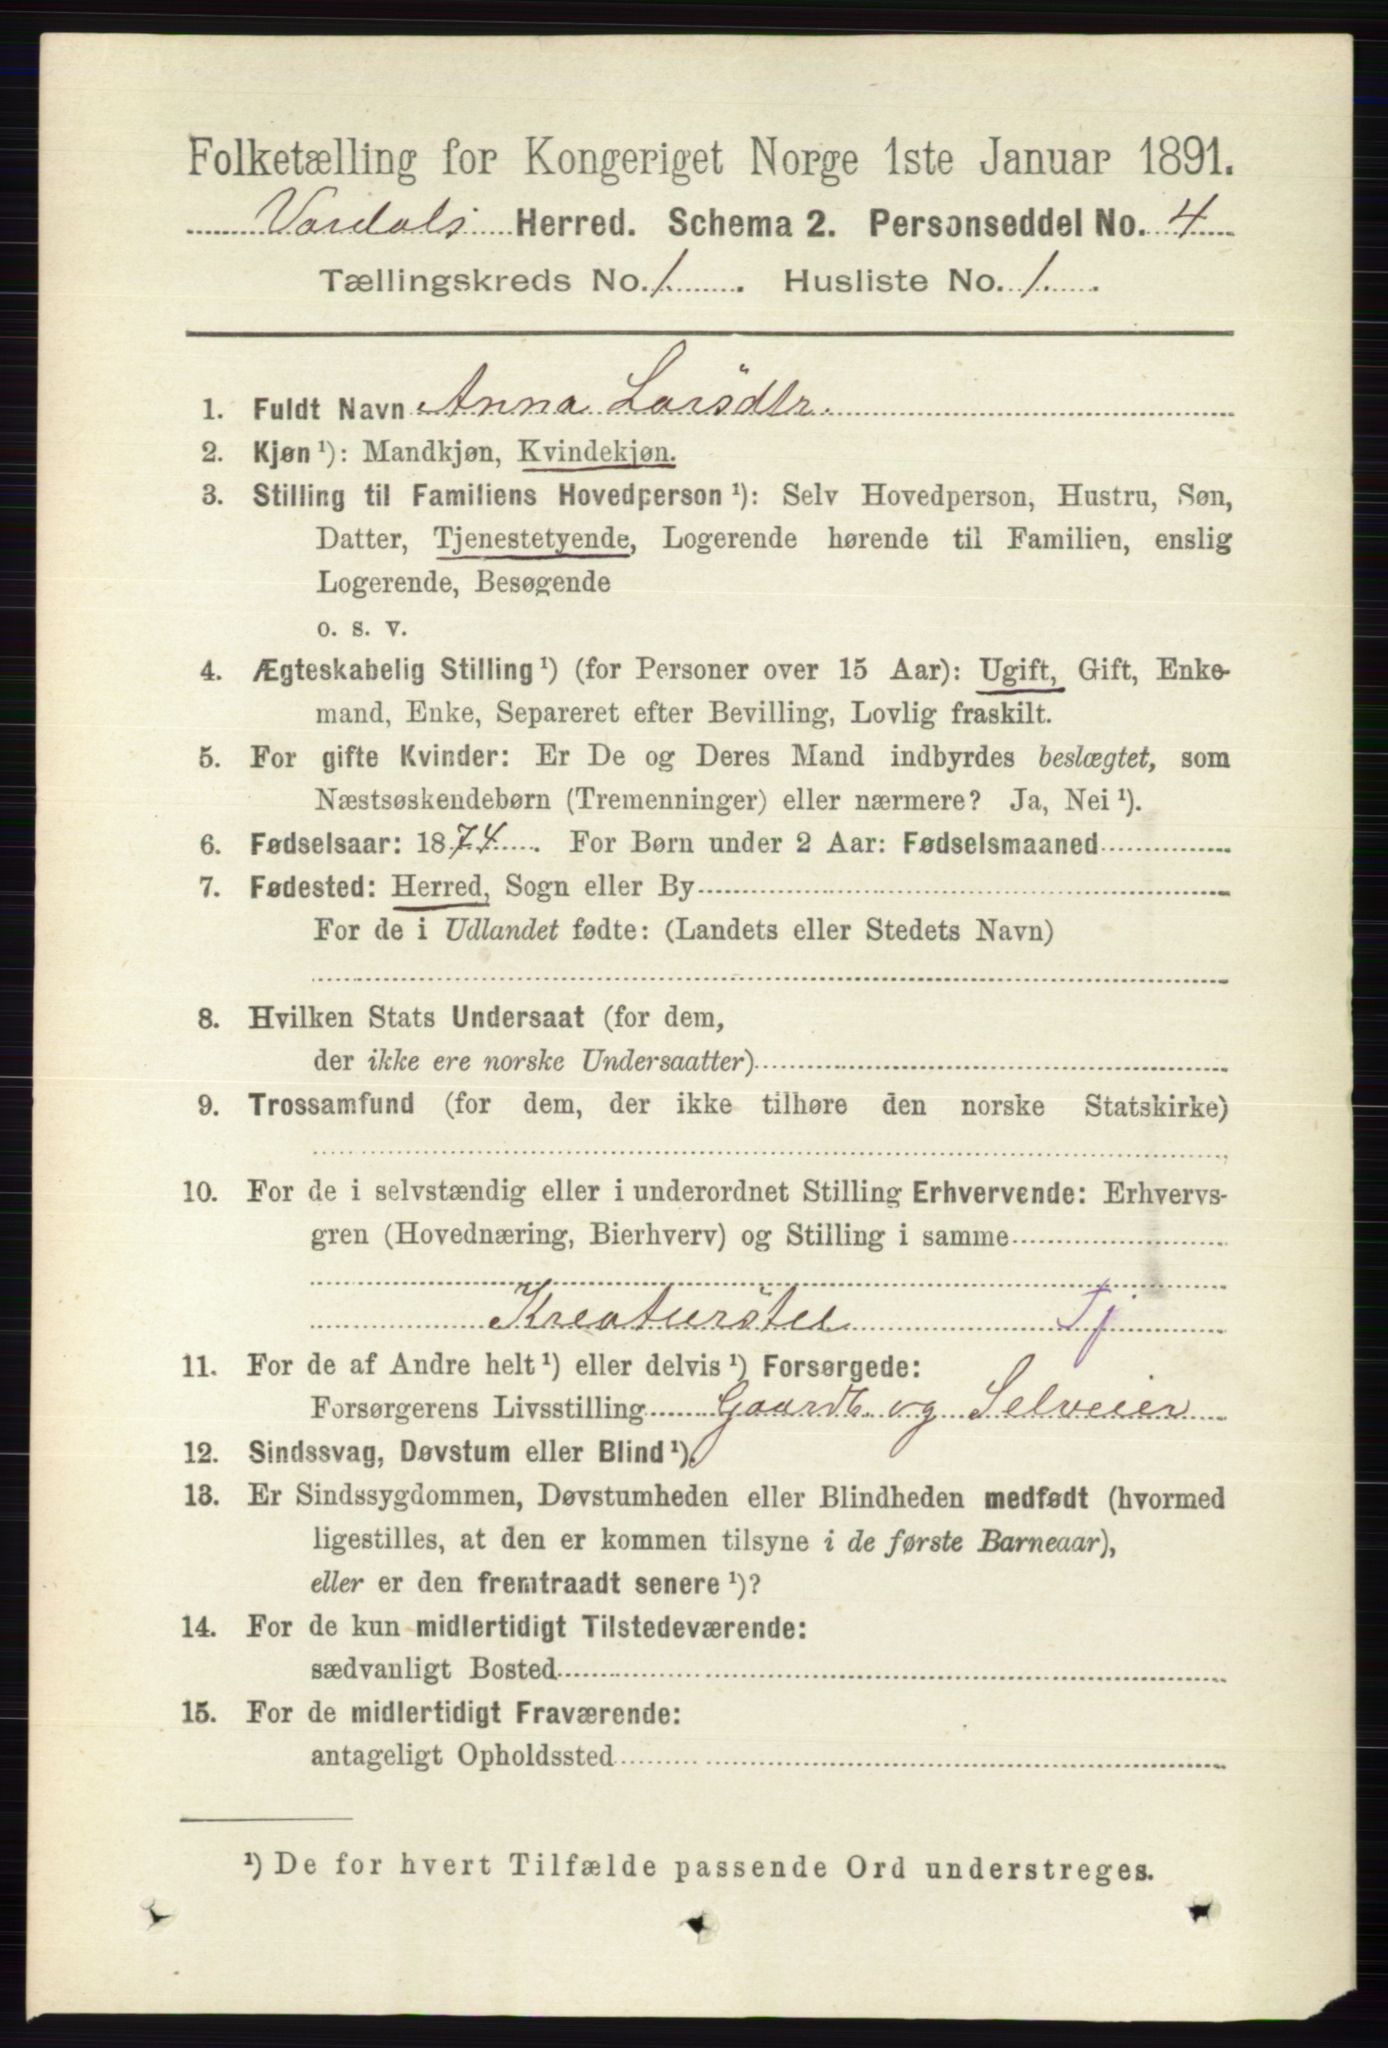 Folketælling for Kongeriget Norge 1ste Januar 1891.
Vardals Herred. Schema 2. Personseddel No. 4
Tællingskreds No. 1. Husliste No. 1.
1. Fuldt Navn Anna Larsdtr.
2. Kjøn ¹): Mandkjøn, Kvindekjøn.
3. Stilling til Familiens Hovedperson ¹): Selv Hovedperson, Hustru, Søn,
Datter, Tjenestetyende, Logerende hørende til Familien, enslig
Logerende, Besøgende
o. s. v.
4. Ægteskabelig Stilling ¹) (for Personer over 15 Aar): Ugift, Gift, Enke-
mand, Enke, Separeret efter Bevilling, Lovlig fraskilt.
5. For gifte Kvinder: Er De og Deres Mand indbyrdes beslægtet, som
Næstsøskendebørn (Tremenninger) eller nærmere? Ja, Nei ¹).
6. Fødselsaar: 1874. For Børn under 2 Aar: Fødselsmaaned
7. Fødested: Herred, Sogn eller By
For de i Udlandet fødte: (Landets eller Stedets Navn)
8. Hvilken Stats Undersaat (for dem,
der ikke ere norske Undersaatter)
9. Trossamfund (for dem, der ikke tilhøre den norske Statskirke)
10. For de i selvstændig eller i underordnet Stilling Erhvervende: Erhvervs-
gren (Hovednæring, Bierhverv) og Stilling i samme
Kreaturstel Tj
11. For de af Andre helt ¹) eller delvis ¹) Forsørgede:
Forsørgerens Livsstilling Gaardb. og Selveier
12. Sindssvag, Døvstum eller Blind ¹).
13. Er Sindssygdommen, Døvstumheden eller Blindheden medfødt (hvormed
ligestilles, at den er kommen tilsyne i de første Barneaar),
eller er den fremtraadt senere ¹)?
14. For de kun midlertidigt Tilstedeværende:
sædvanligt Bosted
15. For de midlertidigt Fraværende:
antageligt Opholdssted
¹) De for hvert Tilfælde passende Ord understreges.